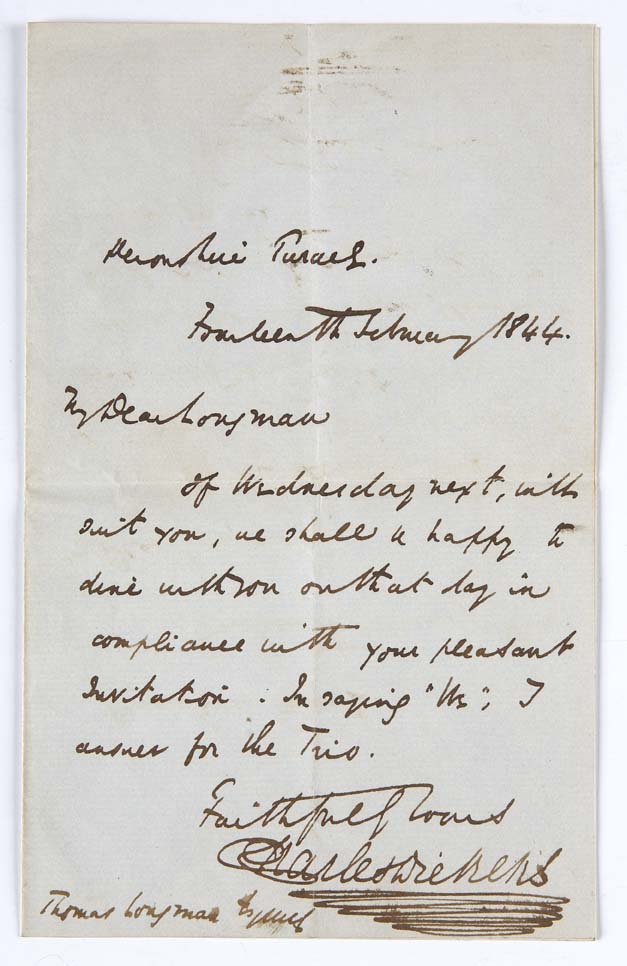 Devonshire Terrace.
Fourteenth February 1844.
My Dear Longman
If Wednesday next, will
suit you, we shall be happy to
dine with you on that day in
compliance with your pleasant
Invitation. In saying "We", I
answer for the Trio.
Faithfully Yours
Charles Dickens
Thomas Longman Esquire